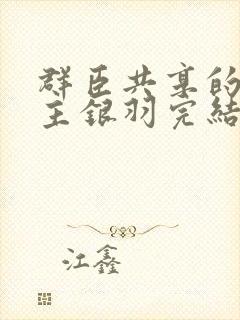 群臣共享的
主銀羽完結
江鑫